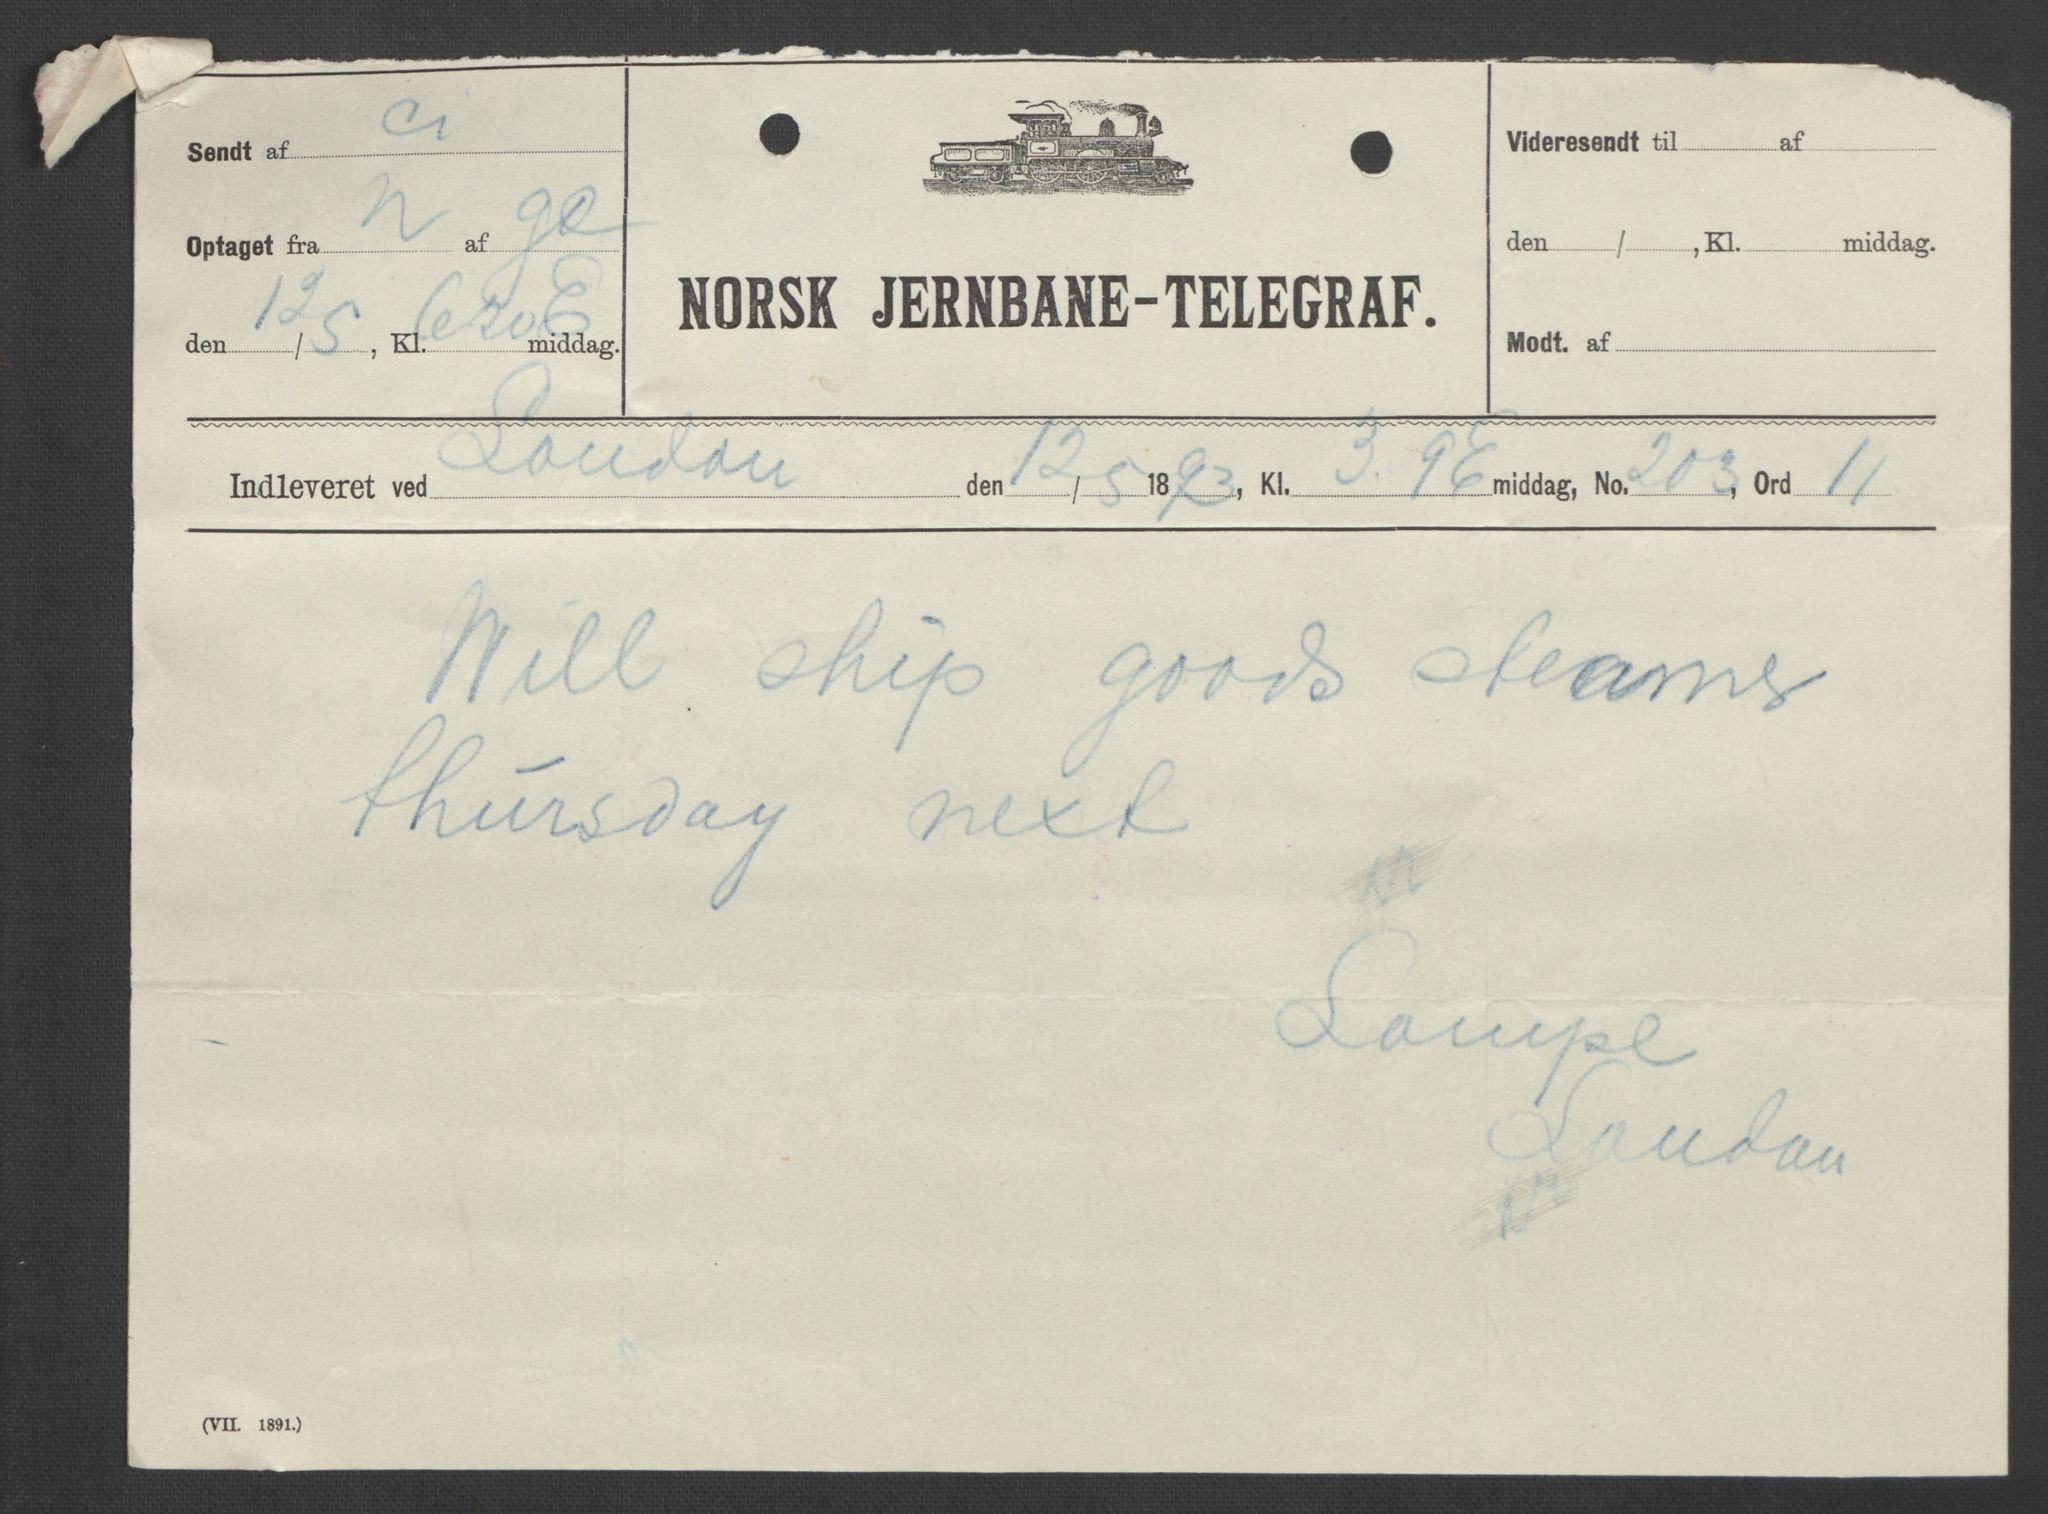 Sendt af ci
Optaget fra n af ge
den 12/5, Kl. 620 E middag.
NORSK JERNBANE-TELEGRAF.
Videresendt til af
den / , Kl. middag.
Modt. af
Indleveret ved London den 12/5 1893, Kl. 3.9 E middag, No. 203, Ord 11
Will ship goods steamer
thursday next
Lampe
London
(VII. 1891.)